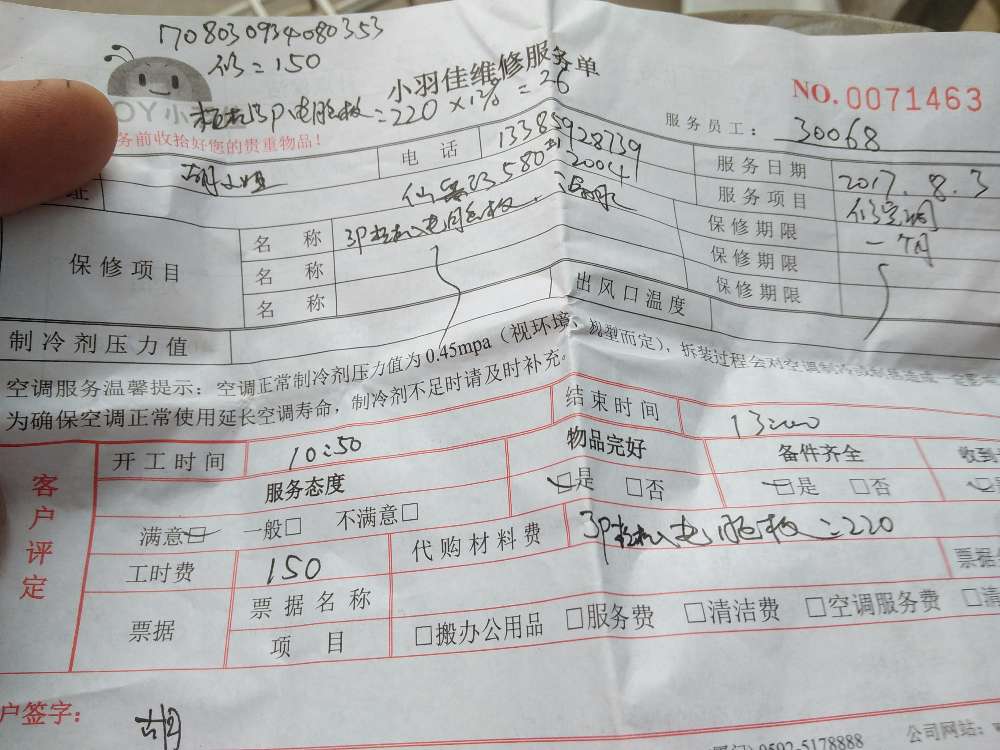 170803093408035​3
修=150
小羽佳维修服务单
NO.0071463
柜机3P电脑板=220×12%=26
OY 小
务前收拾好您的贵重物品！
服务员工： 30068
电话 13385928739
服务日期 2017.8.3
址
580 2004
服务项目 修空调
保修项目
名称 3P柜机电脑板
保修期限 一个月
名称
保修期限
名称
保修期限
制冷剂压力值
出风口温度
空调服务温馨提示：空调正常制冷剂压力值为0.45mpa（视环境、机型而定），拆装过程会对空调制冷
为确保空调正常使用延长空调寿命，制冷剂不足时请及时补充。
客户评定
开工时间 10:50
结束时间 13:00
服务态度
物品完好
备件齐全
收到
满意□ 一般□ 不满意□
□是 □否
□是 □否
工时费 150
代购材料费 3P柜机电脑板=220
票据
票据名称
票据
项目
□搬办公用品 □服务费 □清洁费 □空调服务费 □清
户签字：
胡
0592-5178888
公司网站：